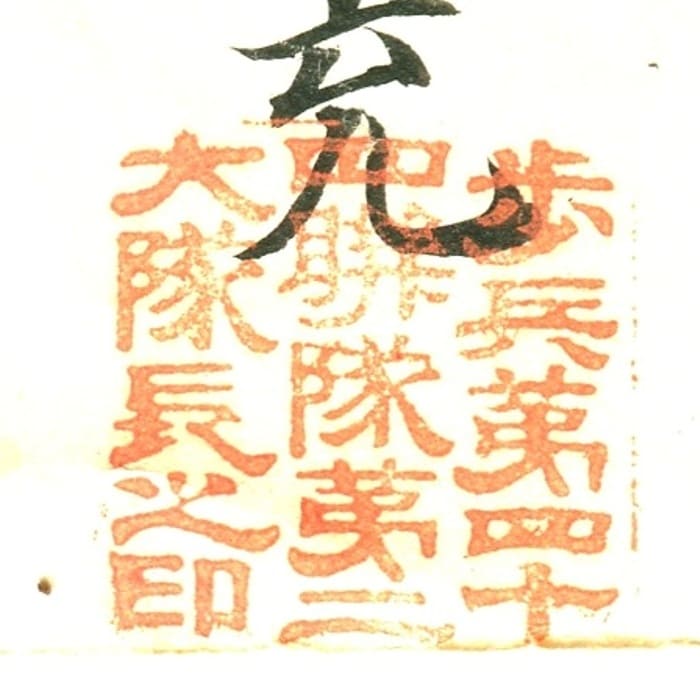 歩兵第四十
四聯隊第二
大隊長之印